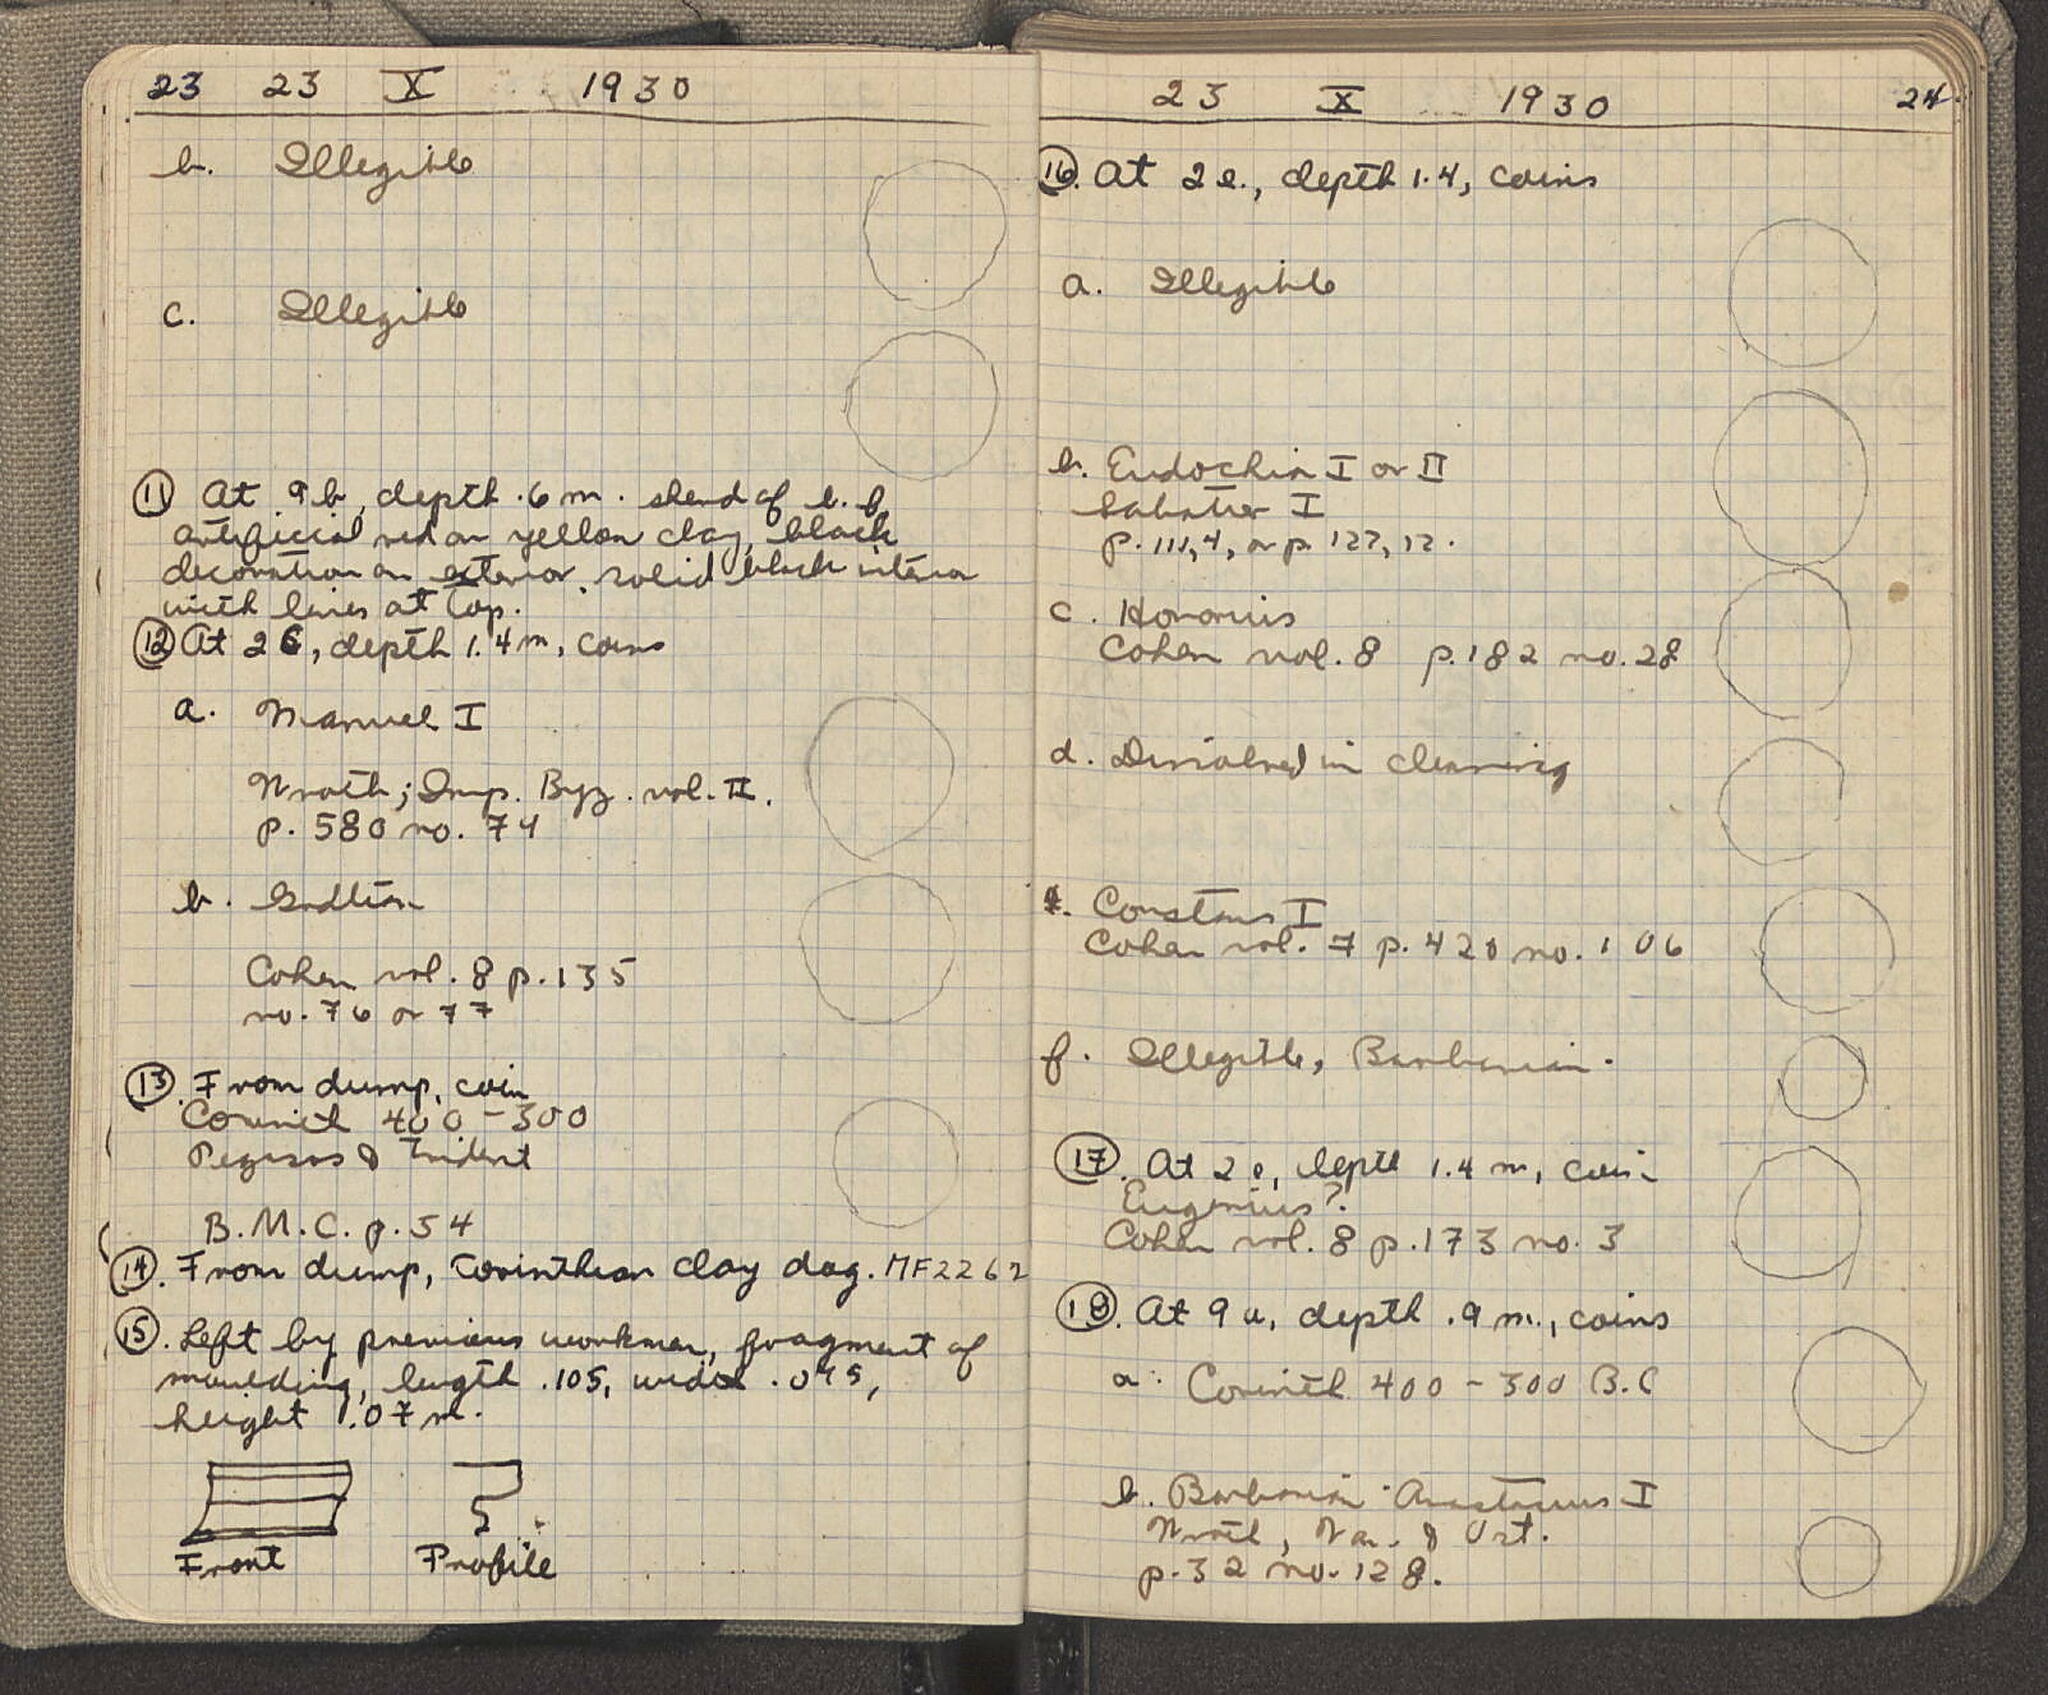 23 23 X 1930
b. Illegible
c. Illegible
11 At 9b, depth .6 m. sherd of b. f.
artificial red on yellow clay, black
decoration on exterior, solid black interior
with lines at top.
12 At 2C, depth 1.4 m, coins
a. Manuel I
Wroth; Imp. Byz. vol. II.
p. 580 no. 74
b. Gratian
Cohen vol. 8 p. 135
no. 76 or 77
13. From dump, coin
Corinth 400-300
Pegasos & Trident
B.M.C. p. 54
14. From dump, Corinthian clay dog. MF2262
15. Left by previous workmen, fragment of
moulding, length .105, width .095,
height .07 m.
Front Profile
23 X 1930 24
16. At 2e., depth 1.4, coins
a. Illegible
b. Eudochia I or II
Sabatier I
p. 111, 4, or p. 127, 12.
c. Honorius
Cohen vol. 8 p. 182 no. 28
d. Dissolved in cleaning
e. Constans I
Cohen vol. 7 p. 420 no. 106
f. Illegible, Barbarian.
17. At 2e, depth 1.4 m, coin
Eugenius?
Cohen vol. 8 p. 173 no. 3
18. At 9a, depth .9 m., coins
a. Corinth 400-300 B.C
b. Barbarian - Anastasius I
Wroth, Van. & Ost.
p. 32 no. 128.